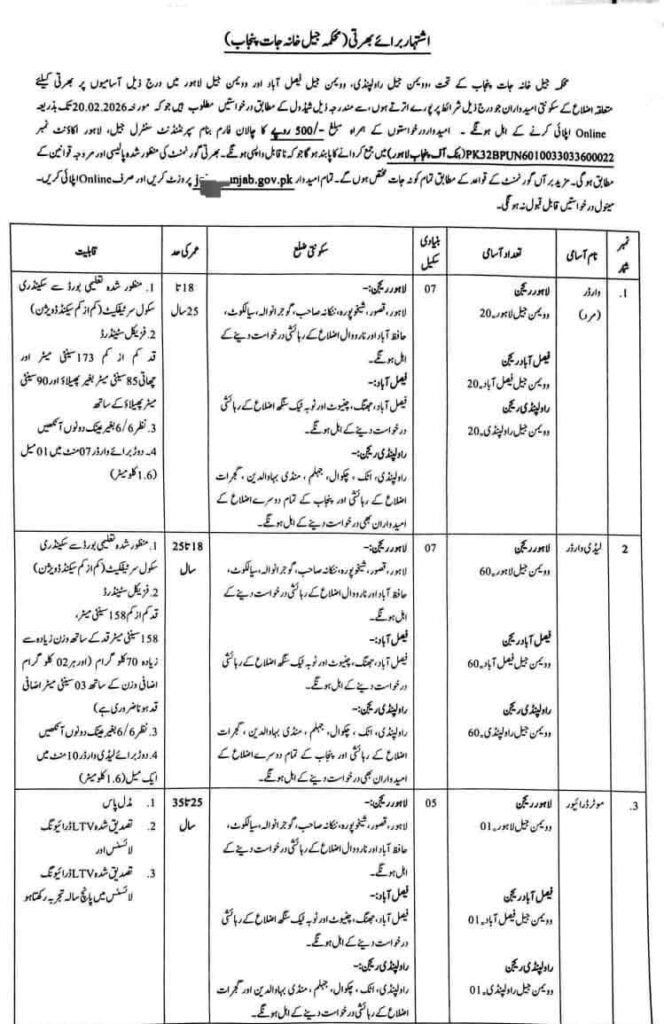 اشتہار برائے بھرتی (محکمہ جیل خانہ جات پنجاب)
محکمہ جیل خانہ جات پنجاب کے تحت، وویمن جیل راولپنڈی، وویمن جیل فیصل آباد اور وویمن جیل لاہور میں درج ذیل آسامیوں پر بھرتی کیلئے
متعلقہ اضلاع کے سکونتی امیدواران جو درج ذیل شرائط پر پورے اترتے ہوں، سے مندرجہ ذیل شیڈول کے مطابق درخواستیں مطلوب ہیں جو کہ مورخہ 20.02.2026 تک بذریعہ
Online اپلائی کرنے کے اہل ہونگے۔ امیدوار درخواستوں کے ہمراہ مبلغ -/500 روپے کا چالان فارم بنام سپرنٹنڈنٹ سنٹرل جیل، لاہور اکاؤنٹ نمبر
PK32BPUN6010033033600022 (بنک آف پنجاب لاہور) میں جمع کروانے کا پابند ہوگا جو کہ ناقابل واپسی ہونگے۔ بھرتی گورنمنٹ کی منظور شدہ پالیسی اور مروجہ قوانین کے
مطابق ہوگی۔ مزید برآں گورنمنٹ کے قواعد کے مطابق تمام کوٹہ جات مختص ہوں گے۔ تمام امیدوار unjab.gov.pk پر وزٹ کریں اور صرف Online اپلائی کریں۔
مینول درخواستیں قابل قبول نہ ہوگی۔
نمبر شمار
نام آسامی
تعداد آسامی
بنیادی سکیل
سکونتی ضلع
عمر کی حد
قابلیت
1.
وارڈر
(مرد)
لاہور ریجن
وویمن جیل لاہور۔20
فیصل آباد ریجن
وویمن جیل فیصل آباد۔20
راولپنڈی ریجن
وویمن جیل راولپنڈی۔20
07
لاہور ریجن:-
لاہور، قصور، شیخوپورہ، ننکانہ صاحب، گوجرانوالہ، سیالکوٹ،
حافظ آباد اور نارووال اضلاع کے رہائشی درخواست دینے کے
اہل ہونگے۔
فیصل آباد:-
فیصل آباد، جھنگ، چنیوٹ اور ٹوبہ ٹیک سنگھ اضلاع کے رہائشی
درخواست دینے کے اہل ہونگے۔
راولپنڈی ریجن:-
راولپنڈی، اٹک، چکوال، جہلم، منڈی بہاوالدین، گجرات
اضلاع کے رہائشی اور پنجاب کے تمام دوسرے اضلاع کے
امیدواران بھی درخواست دینے کے اہل ہونگے۔
18 تا
25 سال
1. منظور شدہ تعلیمی بورڈ سے سکینڈری
سکول سرٹیفکیٹ (کم از کم سیکنڈ ڈویژن)
2. فزیکل سٹینڈرڈ
قد کم از کم 173 سینٹی میٹر اور
چھاتی 85 سینٹی میٹر بغیر پھیلاؤ اور 90 سینٹی
میٹر پھیلاؤ کے ساتھ
3. نظر 6/6 بغیر عینک دونوں آنکھیں
4۔ دوڑ برائے وارڈر 07 منٹ میں 01 میل
(1.6 کلومیٹر)
2
لیڈی وارڈر
لاہور ریجن
وویمن جیل لاہور۔60
فیصل آباد ریجن
وویمن جیل فیصل آباد۔60
راولپنڈی ریجن
وویمن جیل راولپنڈی۔60
07
لاہور ریجن:-
لاہور، قصور، شیخوپورہ، ننکانہ صاحب، گوجرانوالہ، سیالکوٹ،
حافظ آباد اور نارووال اضلاع کے رہائشی درخواست دینے کے
اہل ہونگے۔
فیصل آباد:-
فیصل آباد، جھنگ، چنیوٹ اور ٹوبہ ٹیک سنگھ اضلاع کے رہائشی
درخواست دینے کے اہل ہونگے۔
راولپنڈی ریجن:-
راولپنڈی، اٹک، چکوال، جہلم، منڈی بہاوالدین، گجرات
اضلاع کے رہائشی اور پنجاب کے تمام دوسرے اضلاع کے
امیدواران بھی درخواست دینے کے اہل ہونگے۔
18 تا 25
سال
1. منظور شدہ تعلیمی بورڈ سے سکینڈری
سکول سرٹیفکیٹ (کم از کم سیکنڈ ڈویژن)
2. فزیکل سٹینڈرڈ
قد کم از کم 158 سینٹی میٹر،
158 سینٹی میٹر قد کے ساتھ وزن زیادہ سے
زیادہ 70 کلو گرام (اور ہر 02 کلو گرام
اضافی وزن کے ساتھ 03 سینٹی میٹر اضافی
قد ہونا ضروری ہے)
3. نظر 6/6 بغیر عینک دونوں آنکھیں
4. دوڑ برائے لیڈی وارڈر 10 منٹ میں
ایک میل (1.6 کلومیٹر)
3.
موٹر ڈرائیور
لاہور ریجن
وویمن جیل لاہور۔01
فیصل آباد ریجن
وویمن جیل فیصل آباد۔01
راولپنڈی ریجن
وویمن جیل راولپنڈی۔01
05
لاہور ریجن:-
لاہور، قصور، شیخوپورہ، ننکانہ صاحب، گوجرانوالہ، سیالکوٹ،
حافظ آباد اور نارووال اضلاع کے رہائشی درخواست دینے کے
اہل ہونگے۔
فیصل آباد:-
فیصل آباد، جھنگ، چنیوٹ اور ٹوبہ ٹیک سنگھ اضلاع کے رہائشی
درخواست دینے کے اہل ہونگے۔
راولپنڈی ریجن:-
راولپنڈی، اٹک، چکوال، جہلم، منڈی بہاوالدین اور گجرات
25 تا 35
سال
1. مڈل پاس
2. تصدیق شدہ LTV ڈرائیونگ
لائسنس اور
3. تصدیق شدہ LTV ڈرائیونگ
لائسنس میں پانچ سالہ تجربہ رکھتا ہو